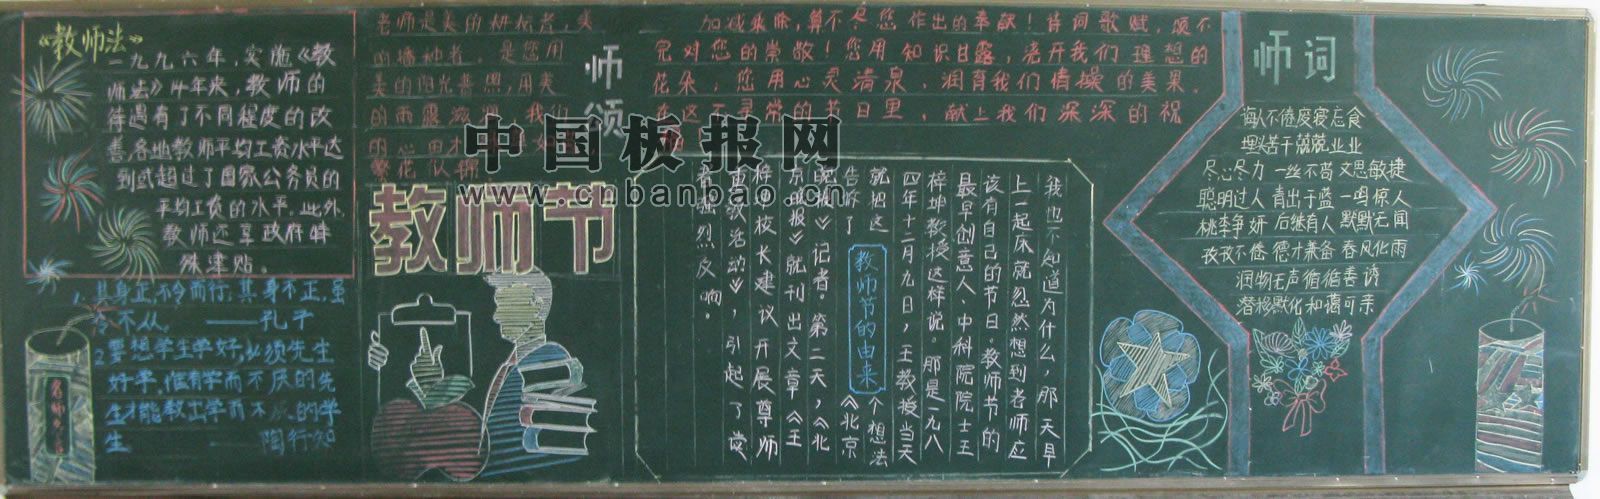 《教师法》
一九九六年,实施《教
师法》14年来,教师的
待遇有了不同程度的改
善,各地教师平均工资水平达
到或超过了国家公务员的
平均工资的水平。此外,
教师还享政府特
殊津贴。
1、其身正,不令而行;其身不正,虽
令不从。 ——孔子
2要想学生学好,必须先生
好学,惟有学而不厌的先
生才能教出学而不厌的学
生 ——陶行知
师颂
老师是美的耕耘者,美
的播种者。是您用
美的阳光普照,用美
的雨露滋润,我们
的心田才
繁花似锦
加减乘除,算不尽您作出的奉献!诗词歌赋,颂不
完对您的崇敬!您用知识甘露,浇开我们理想的
花朵,您用心灵清泉,润育我们情操的美果。
在这不寻常的节日里,献上我们深深的祝
中国板报网
www.cnbanbao.cn
教师节
教师节的由来
我也不知道为什么,那天早
上一起床就忽然想到老师应
该有自己的节日。教师节的
最早创意人、中科院院士王
梓坤教授这样说。那是一九八
四年十二月九日,王教授当天
就把这个想法
告诉了《北京
晚报》记者。第二天,《北
京晚报》就刊出文章《王
梓坤校长建议开展尊师
重教活动》,引起了读
者强烈反响。
师词
诲人不倦废寝忘食
埋头苦干兢兢业业
尽心尽力 一丝不苟 文思敏捷
聪明过人 青出于蓝 一鸣惊人
桃李争妍 后继有人 默默无闻
孜孜不倦 德才兼备 春风化雨
润物无声循循善诱
潜移默化和蔼可亲